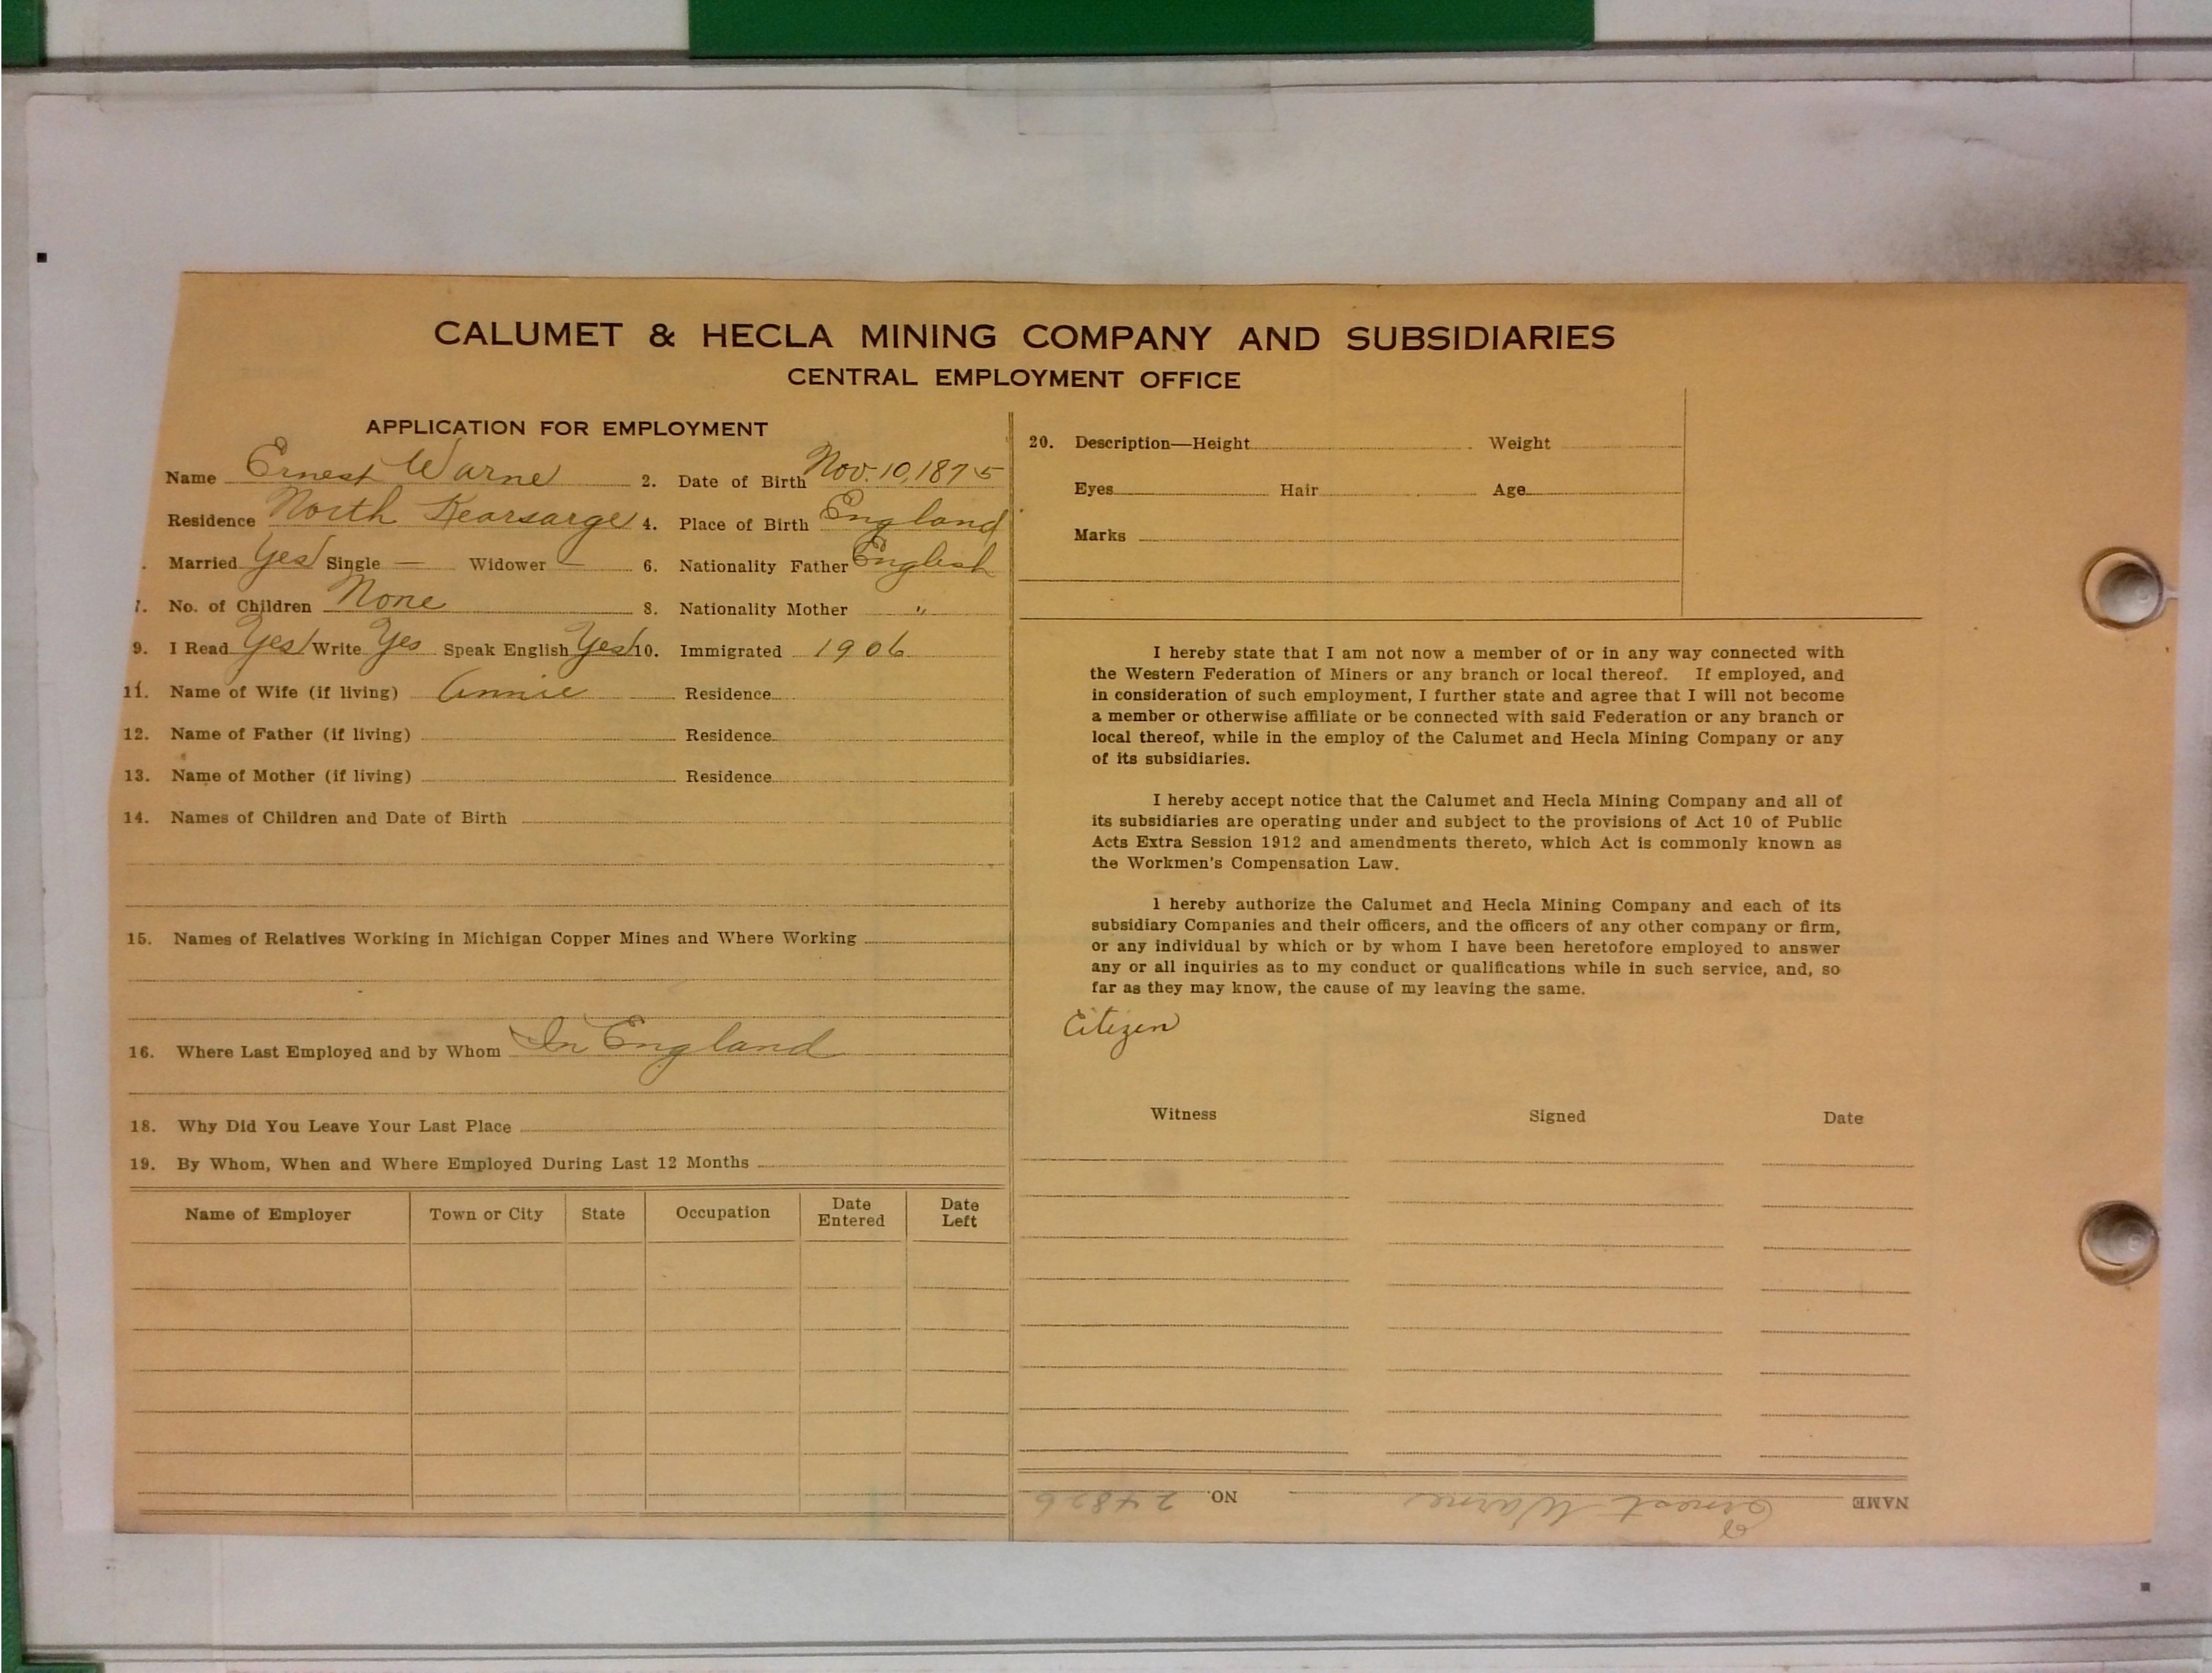 CALUMET & HECLA MINING COMPANY AND SUBSIDIARIES
CENTRAL EMPLOYMENT OFFICE
APPLICATION FOR EMPLOYMENT
Name Ernest Warne 2. Date of Birth Nov. 10, 1875
Residence North Kearsarge 4. Place of Birth England
. Married Yes Single — Widower — 6. Nationality Father English
7. No. of Children None 8. Nationality Mother "
9. I Read Yes Write Yes Speak English Yes 10. Immigrated 1906
11. Name of Wife (if living) Annie Residence
12. Name of Father (if living) Residence
13. Name of Mother (if living) Residence
14. Names of Children and Date of Birth
15. Names of Relatives Working in Michigan Copper Mines and Where Working
16. Where Last Employed and by Whom In England
18. Why Did You Leave Your Last Place
19. By Whom, When and Where Employed During Last 12 Months
Name of Employer Town or City State Occupation Date Entered Date Left
20. Description—Height Weight
Eyes Hair Age
Marks
I hereby state that I am not now a member of or in any way connected with
the Western Federation of Miners or any branch or local thereof. If employed, and
in consideration of such employment, I further state and agree that I will not become
a member or otherwise affiliate or be connected with said Federation or any branch or
local thereof, while in the employ of the Calumet and Hecla Mining Company or any
of its subsidiaries.
I hereby accept notice that the Calumet and Hecla Mining Company and all of
its subsidiaries are operating under and subject to the provisions of Act 10 of Public
Acts Extra Session 1912 and amendments thereto, which Act is commonly known as
the Workmen's Compensation Law.
I hereby authorize the Calumet and Hecla Mining Company and each of its
subsidiary Companies and their officers, and the officers of any other company or firm,
or any individual by which or by whom I have been heretofore employed to answer
any or all inquiries as to my conduct or qualifications while in such service, and, so
far as they may know, the cause of my leaving the same.
Citizen
Witness Signed Date
NAME Ernest Warne NO. 24826